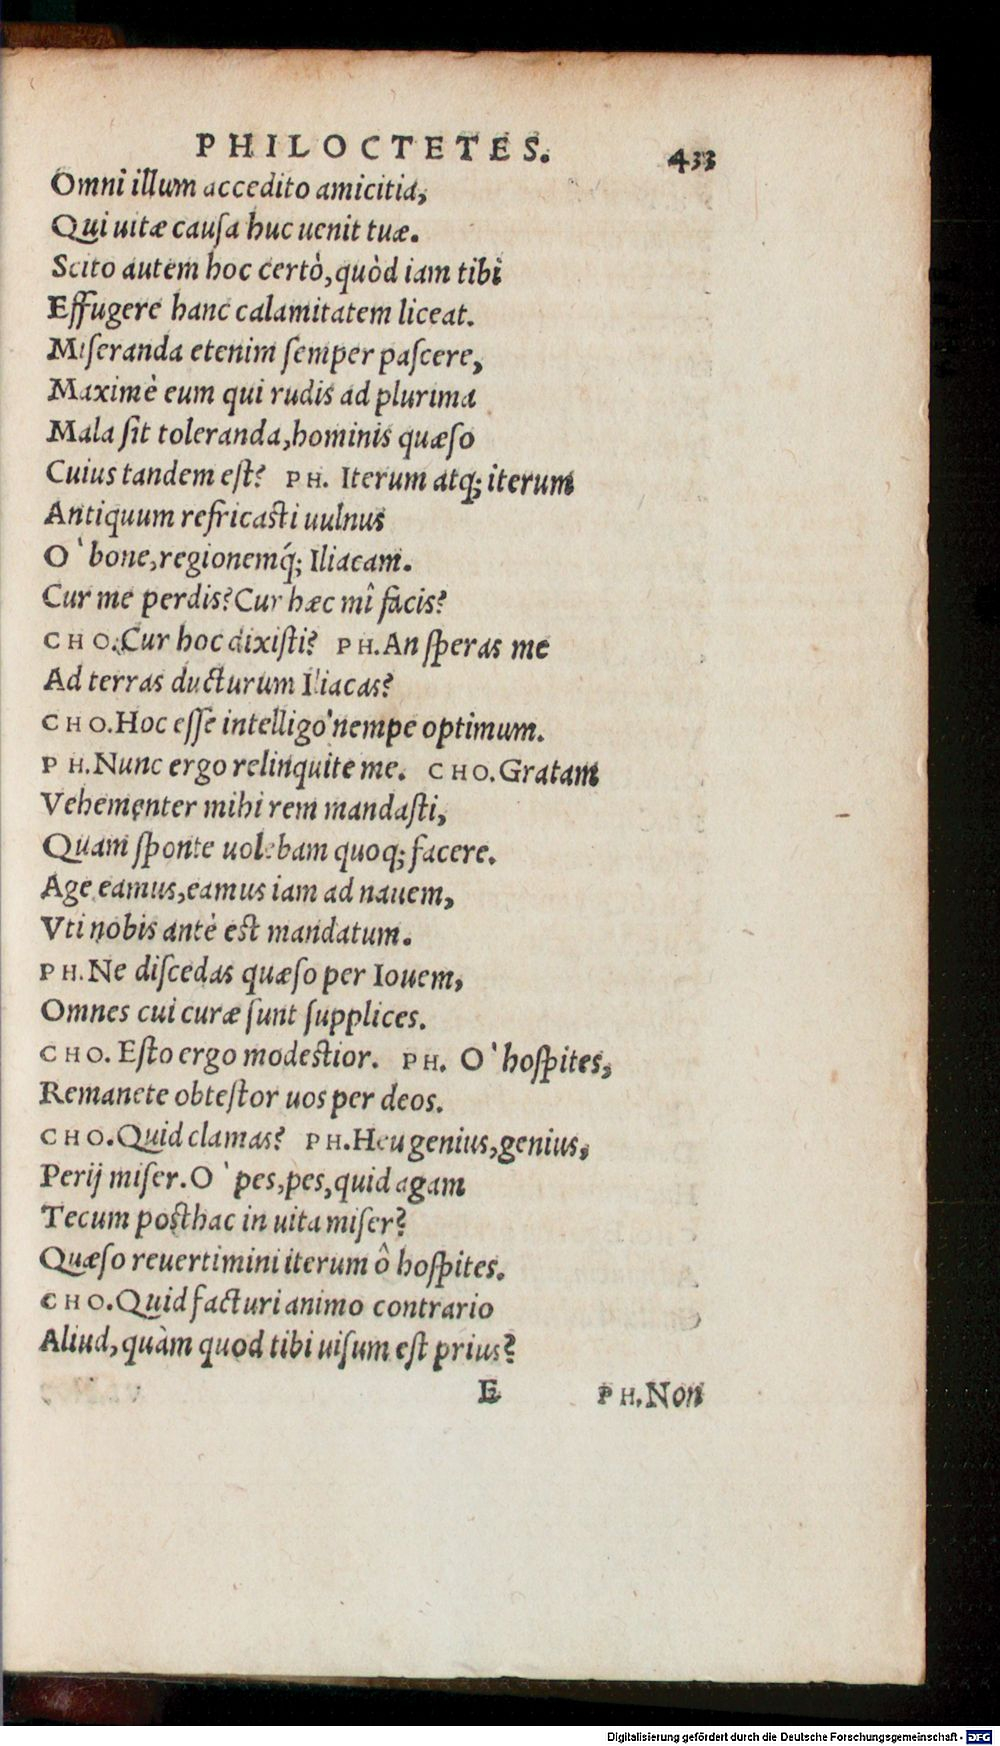 PHILOCTETES. 433
Omni illum accedito amicitia,
Qui uitæ causa huc uenit tuæ.
Scito autem hoc certò, quòd iam tibi
Effugere hanc calamitatem liceat.
Miseranda etenim semper pascere,
Maximè eum qui rudis ad plurima
Mala sit toleranda, hominis quæso
Cuius tandem est? PH. Iterum atq; iterum
Antiquum refricasti uulnus
O` bone, regionemq́; Iliacam.
Cur me perdis? Cur hæc mî facis?
CHO. Cur hoc dixisti? PH. An speras me
Ad terras ducturum Iliacas?
CHO. Hoc esse intelligo nempe optimum.
PH. Nunc ergo relinquite me. CHO. Gratam
Vehementer mihi rem mandasti,
Quam sponte uolebam quoq; facere.
Age eamus, eamus iam ad nauem,
Vti nobis antè est mandatum.
PH. Ne discedas quæso per Iouem,
Omnes cui curæ sunt supplices.
CHO. Esto ergo modestior. PH. O` hospites,
Remanete obtestor uos per deos.
CHO. Quid clamas? PH. Heu genius, genius,
Perij miser. O` pes, pes, quid agam
Tecum posthac in uita miser?
Quæso reuertimini iterum ô hospites.
CHO. Quid facturi animo contrario
Aliud, quàm quod tibi uisum est prius?
E PH. Non
Digitalisierung gefördert durch die Deutsche Forschungsgemeinschaft - DFG